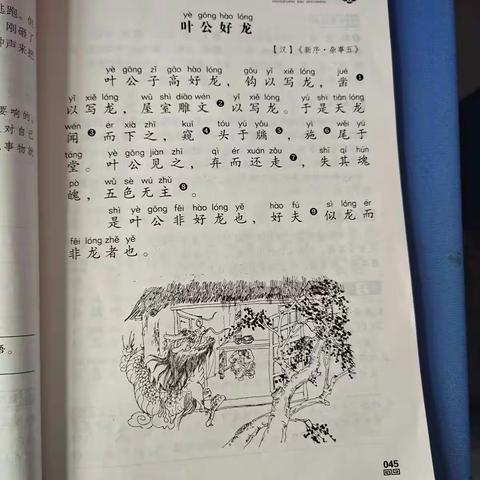 yè gōng hào lóng
叶公好龙
【汉】《新序·杂事五》
yè gōng zǐ gāo hào lóng gōu yǐ xiě lóng jué
叶公子高好龙，钩以写龙，凿❶
yǐ xiě lóng wū shì diāo wén yǐ xiě lóng yú shì tiān lóng
以写龙，屋室雕文❷以写龙。于是天龙
wén ér xià zhī kuī tóu yú yǒu yì wěi yú
闻❸而下之，窥❹头于牖❺，施❻尾于
táng yè gōng jiàn zhī qì ér xuán zǒu shī qí hún
堂。叶公见之，弃而还走❼，失其魂
pò wǔ sè wú zhǔ
魄，五色无主❽。
shì yè gōng fēi hào lóng yě hào fú sì lóng ér
是叶公非好龙也，好夫❾似龙而
fēi lóng zhě yě
非龙者也。
逃跑。但
刚砸了
钟声来把
要响的。
对自己
事物就
045